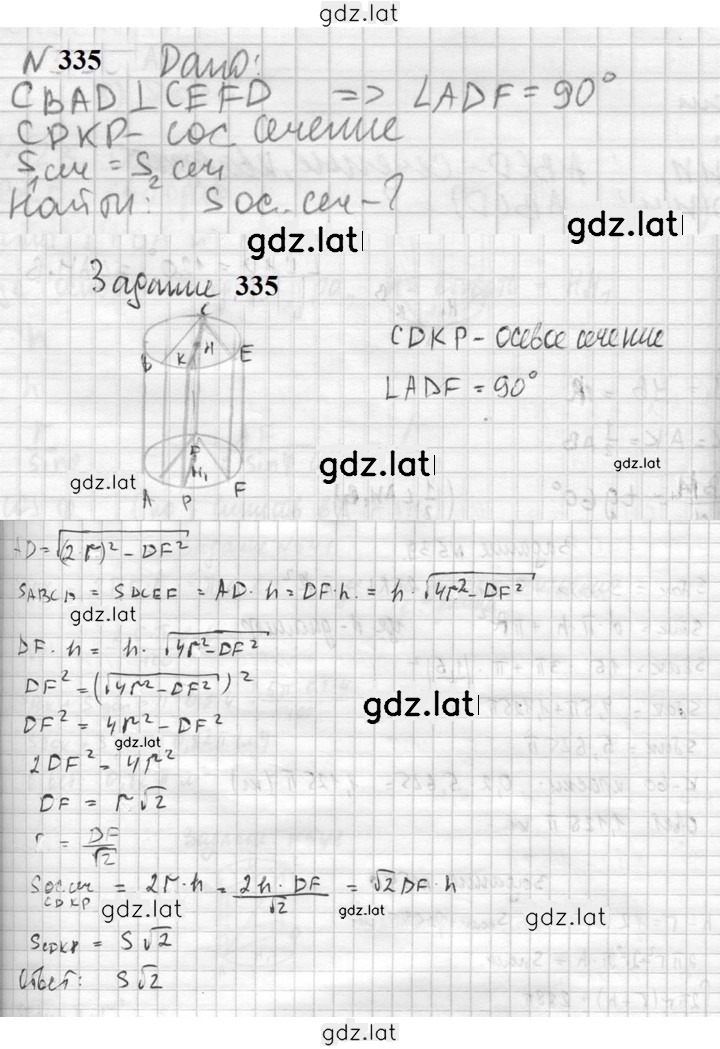 gdz.lat
N 335 Дано:
CBAD⊥CEFD => ∠ADF = 90°
CDKP - ос сечение
S₁сеч = S₂сеч
Найти: S ос. сеч - ?
gdz.lat
gdz.lat
Задание 335
C
B K H E
CDKP - осевое сечение
∠ADF = 90°
D
H₁
A P F
gdz.lat
gdz.lat
gdz.lat
AD = √(2·r)² - DF²
SABCD = SDCEF = AD · h = DF · h. = h · √4r² - DF²
gdz.lat
DF · h = h · √4r² - DF²
DF² = (√4r² - DF²)²
DF² = 4r² - DF²
gdz.lat
gdz.lat
2DF² = 4r²
DF = r√2
r = DF/√2
Sос.сеч CDKP = 2r·h = 2h·DF/√2 = √2 DF·h
gdz.lat
gdz.lat
gdz.lat
SCDKP = S√2
Ответ: S√2
gdz.lat